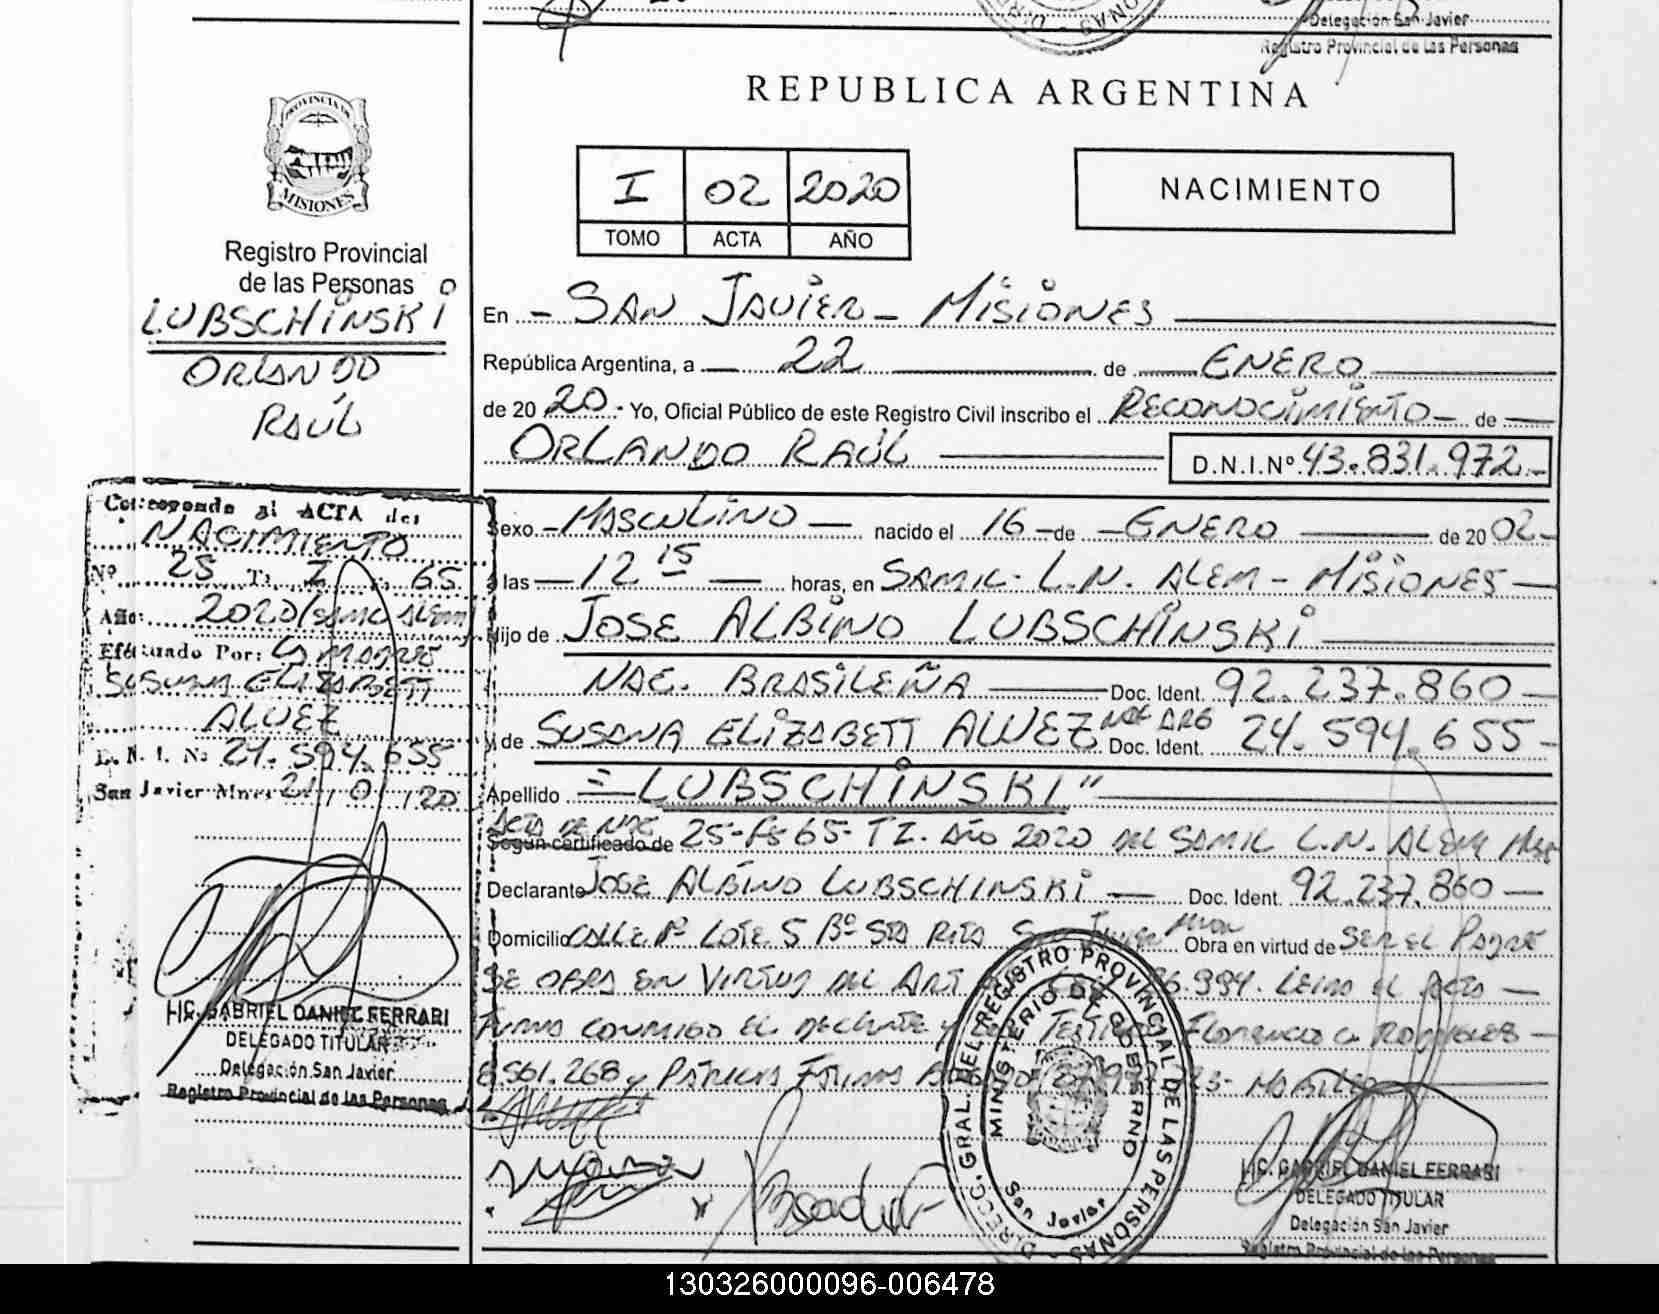 Delegación San Javier
Registro Provincial de las Personas
REPUBLICA ARGENTINA
PROVINCIA DE
MISIONES
I 02 2020
TOMO ACTA AÑO
NACIMIENTO
Registro Provincial
de las Personas
LUBSCHINSKI
ORLANDO
RAÚL
En - SAN JAVIER - MISIONES
República Argentina, a 22 de ENERO
de 2020 - Yo, Oficial Público de este Registro Civil inscribo el RECONOCIMIENTO - de
ORLANDO RAÚL D.N.I.Nº 43.831.972-
Sexo - MASCULINO - nacido el 16 - de - ENERO de 2002-
a las - 12 15 - horas, en SAMIC - L.N. ALEM - MISIONES -
Hijo de JOSE ALBINO LUBSCHINSKI
NAC. BRASILEÑA Doc. Ident. 92.237.860 -
y de SUSANA ELIZABETT ALVEZ NAC ARG Doc. Ident. 24.594.655 -
Apellido = LUBSCHINSKI "
ACTA DE NAC
Según certificado de 25-Fs 65- T I. AÑO 2020 DEL SAMIC L.N. ALEM
Declarante JOSE ALBINO LUBSCHINSKI - Doc. Ident. 92.237.860 -
Domicilio CALLE Nº LOTE 5 Bº STA RITA Obra en virtud de SER EL PADRE
SE OBRA EN VIRTUD DEL ART 26.994. LEIDO EL ACTA -
FIRMA CONMIGO EL
8.561.268 y PATRICIA
Corresponde al ACTA de:
NACIMIENTO
Nº 25 T: I F: 65
Año: 2020/SAMIC ALEM
Efectuado Por: LA MADRE
SUSANA ELIZABETT
ALVEZ
D. N. I. Nº 24.594.655
San Javier Mnes 21/01/20
LIC. GABRIEL DANIEL FERRARI
DELEGADO TITULAR
Delegación San Javier
Registro Provincial de las Personas
DIRECC. GRAL. DEL REGISTRO PROVINCIAL DE LAS PERSONAS
MINISTERIO DE GOBIERNO
San Javier
LIC. GABRIEL DANIEL FERRARI
DELEGADO TITULAR
Delegación San Javier
Registro Provincial de las Personas
130326000096-006478